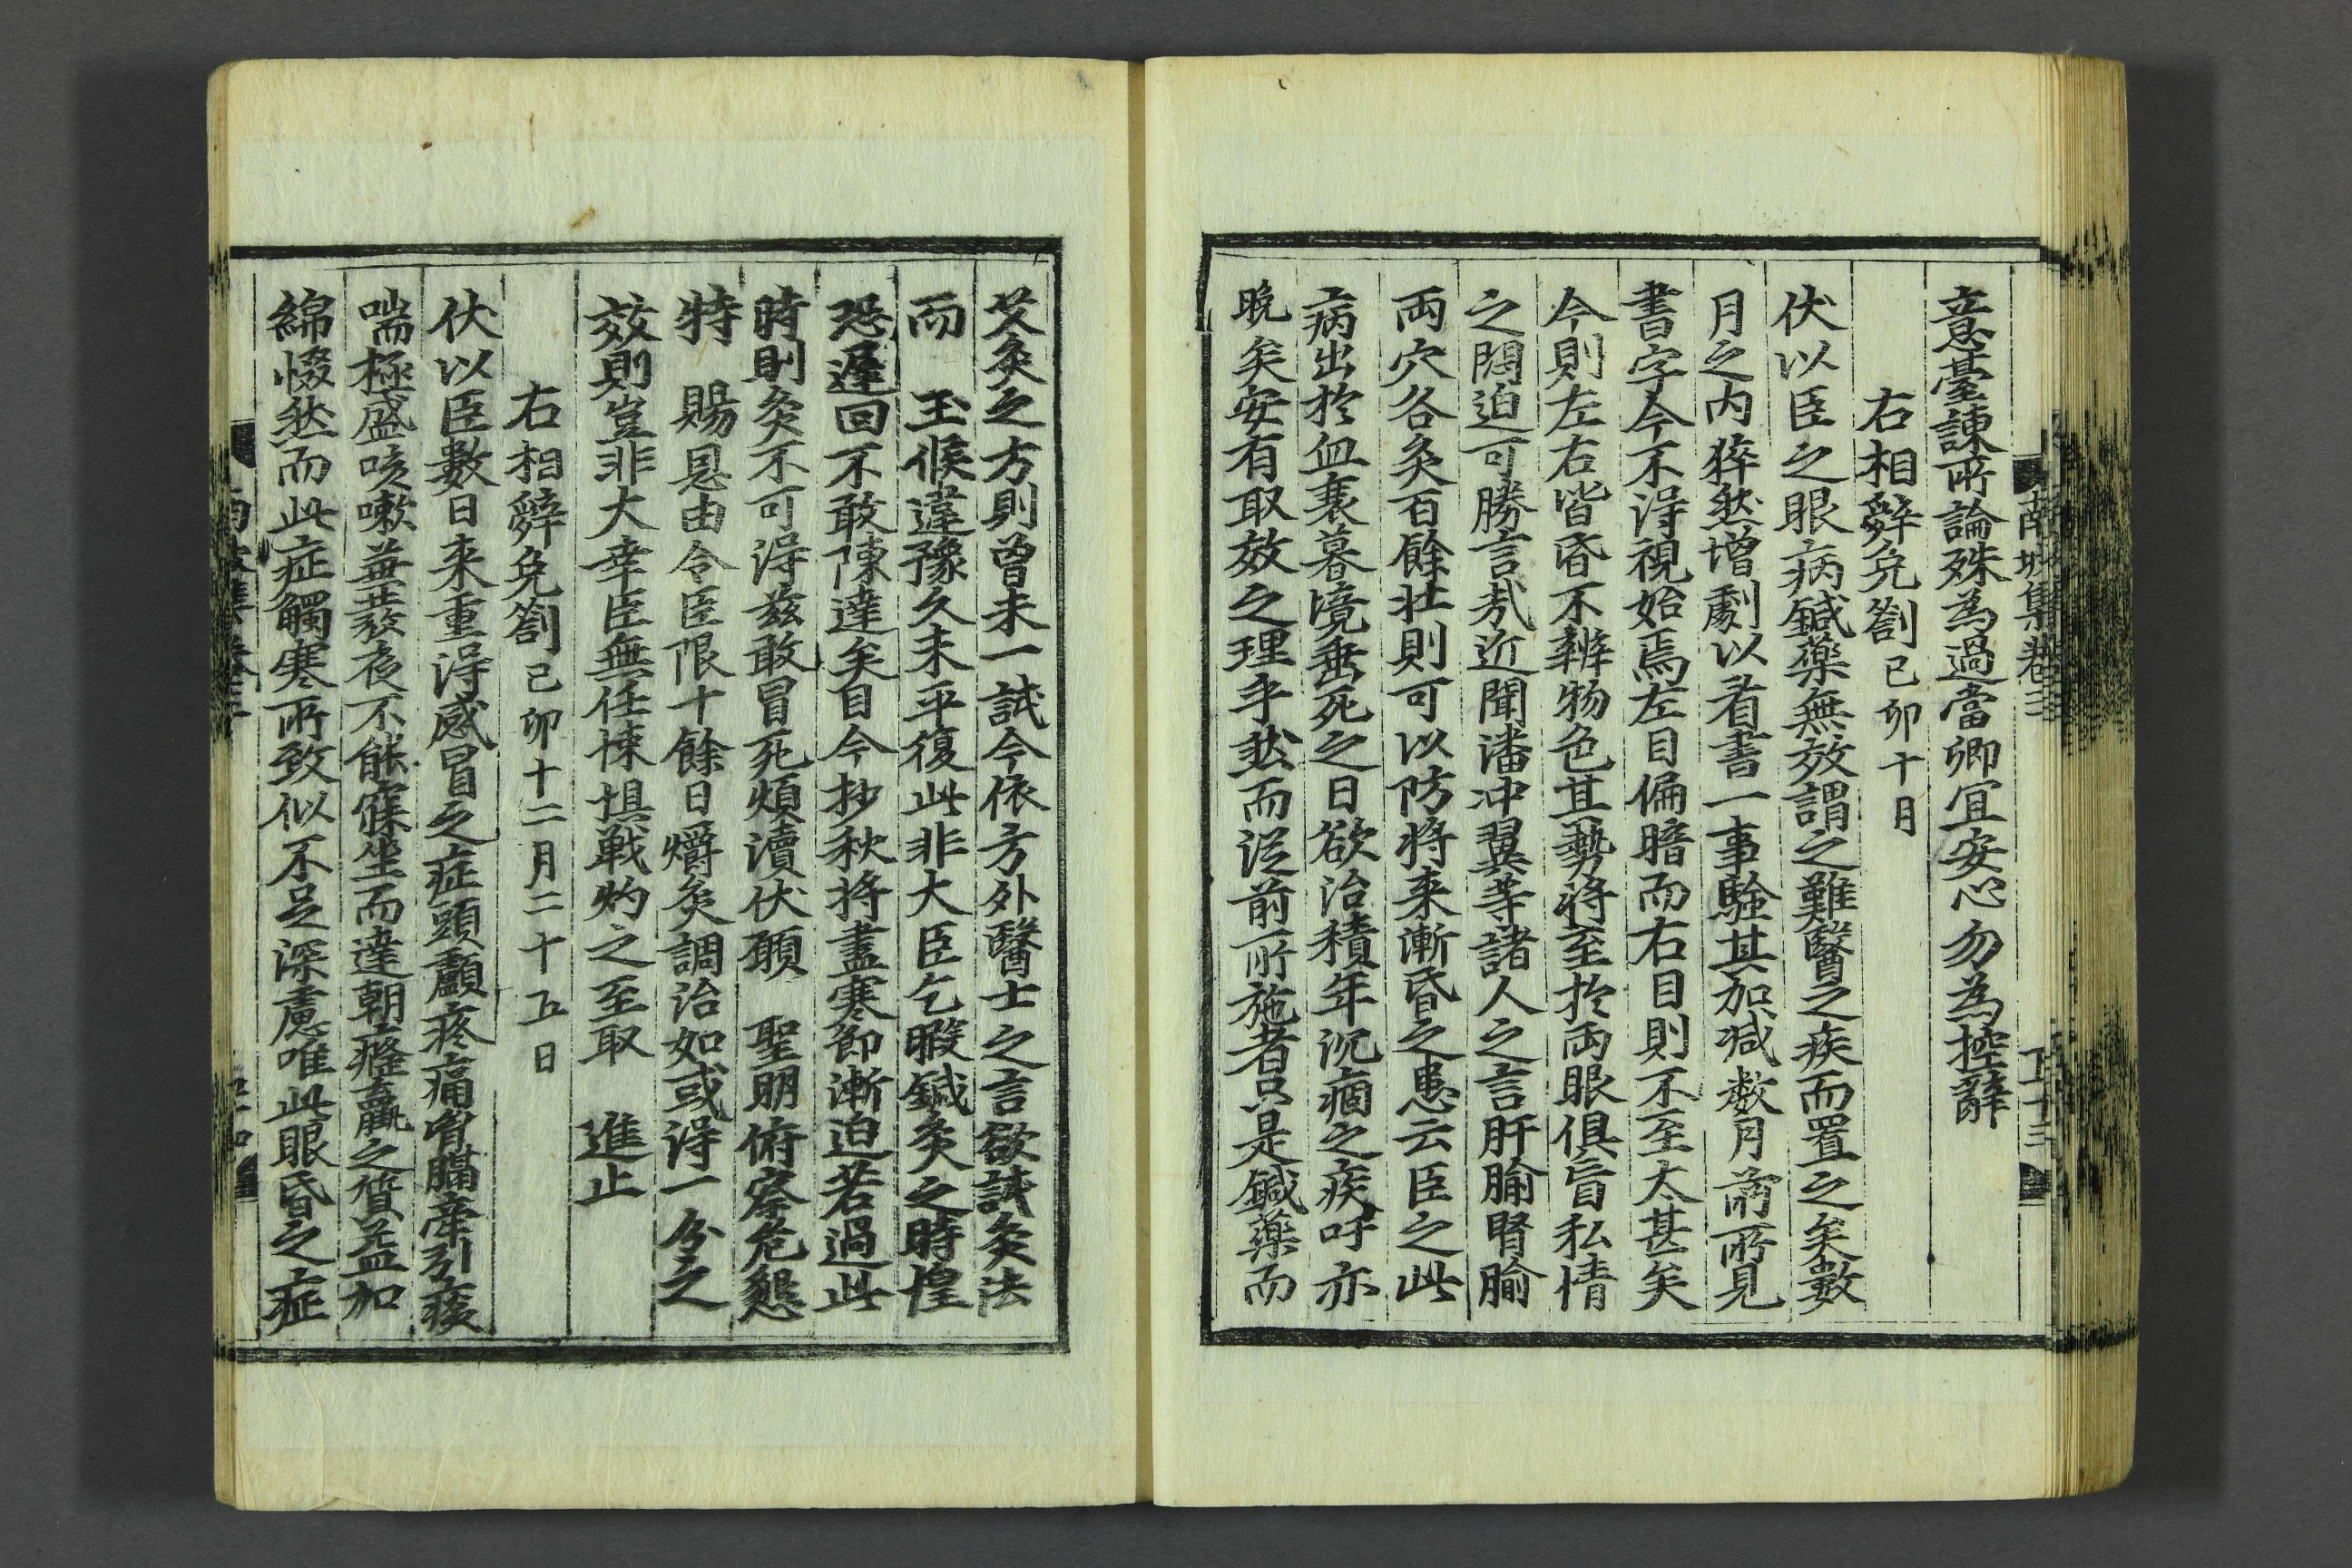 意臺諫所論殊為過當卿宜安心勿為控辭
右相辭免劄己卯十月
伏以臣之眼病鍼藥無效謂之難醫之疾而置之矣數
月之内猝然增劇以看書一事驗其加减數月前所見
書字今不淂視始焉左目偏暗而右目則不至太甚矣
今則左右皆昏不辨物色其勢将至於両眼俱盲私情
之悶迫可勝言㢤近聞潘冲翼等諸人之言肝腧腎腧
両穴各灸百餘壮則可以防将来漸昏之患云臣之此
病出於血衰暮境垂死之日欲治積年沉痼之疾吁亦
晩矣安有取效之理乎然而從前所施者只是鍼藥而
艾灸之方則曾未一試今依方外醫士之言欲試灸法
而 玉候違豫久未平復此非大臣乞暇鍼灸之時惶
恐遲回不敢陳達矣目今抄秋将盡寒節漸迫若過此
時則灸不可淂玆敢冒死煩瀆伏願 聖明俯察危懇
特 賜恩由令臣限十餘日爝灸調治如或淂一分之
效則豈非大幸臣無任悚惧戰灼之至取 進止
右相辭免劄己卯十二月二十五日
伏以臣數日来重淂感冒之症頭顱疼痛胷膈牽引痰
喘極盛咳嗽兼發夜不能寐坐而達朝癃羸之質益加
綿惙然而此症觸寒所致似不足深慮唯此眼昏之症